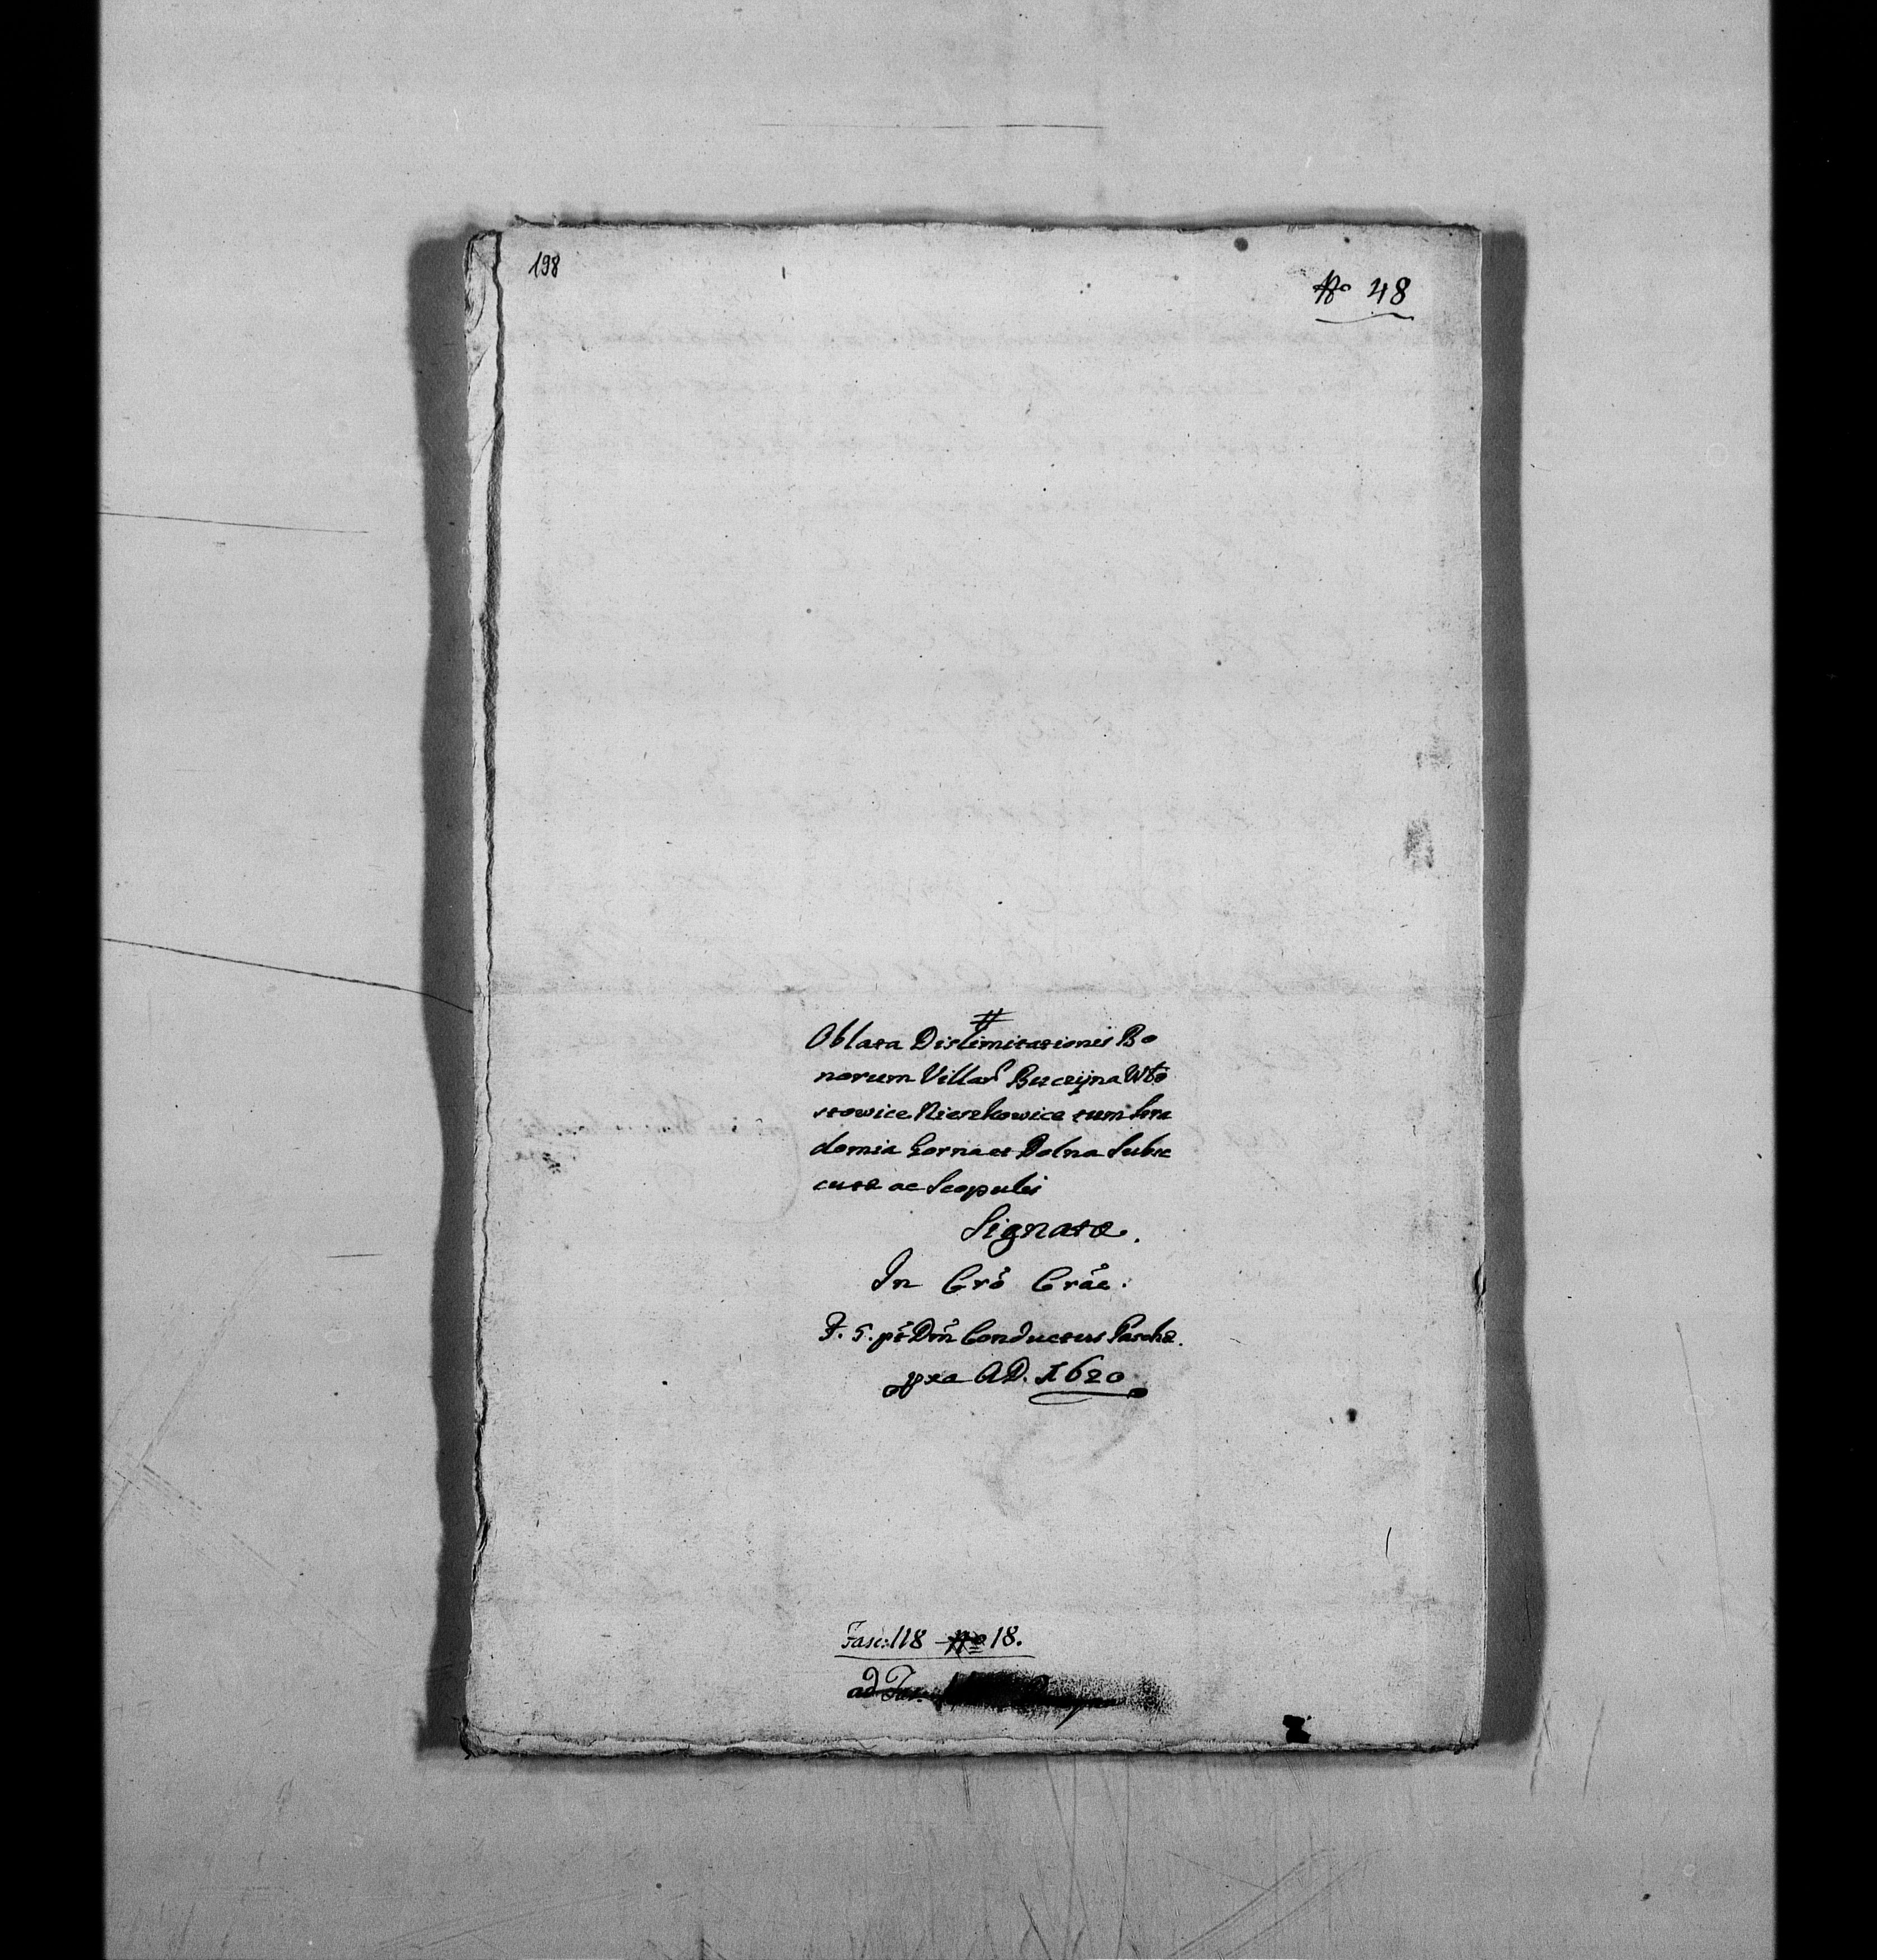 198
No 48
#
Oblata Dislimitationis Bo
norum Villar Buczyna Wto
stowice Nieszkowice cum Sera
domia Gorna et Dolna Subse
cutæ ac Scopulis
Signatæ.
In Crõ Crãc:
F. 5. pt Dm̃ Conductus Paschæ.
pra A.D. 1620
Fasc: 118 No 18.
ad Fas.